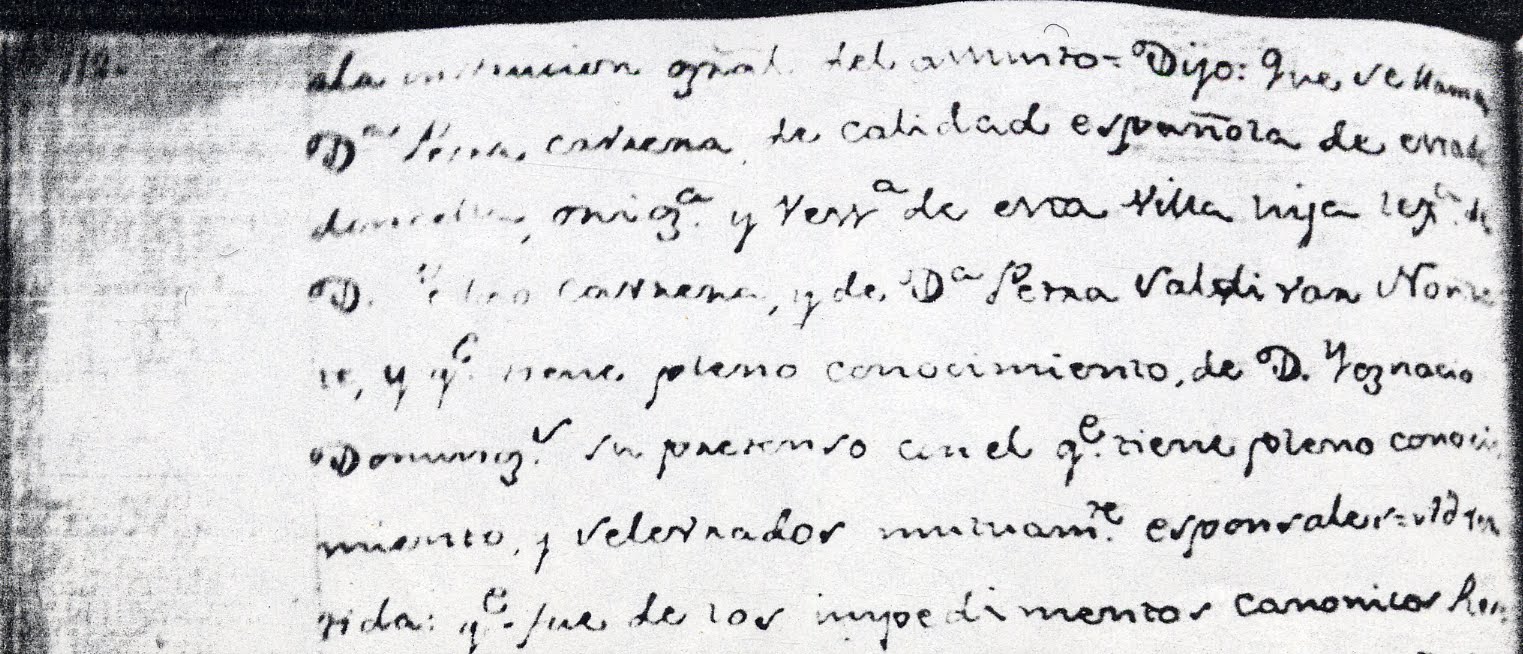 112.
ala instrucion gral. del asunto= Dijo: Que se llama
Dª Petra, castrena, de calidad española de estado
doncella, orig.ª y vess.ª de esta villa hija lex.ª de
D. Pedro castrena, y de Dª Petra Valdivan Norie
te, y q.e tiene pleno conocimiento, de D. Ygnacio
Doming.s su pretenso con el q.e tiene pleno conoci
miento, y selebrados mutuam.te esponsales
tida: q.e fue de los impedimentos canonicos